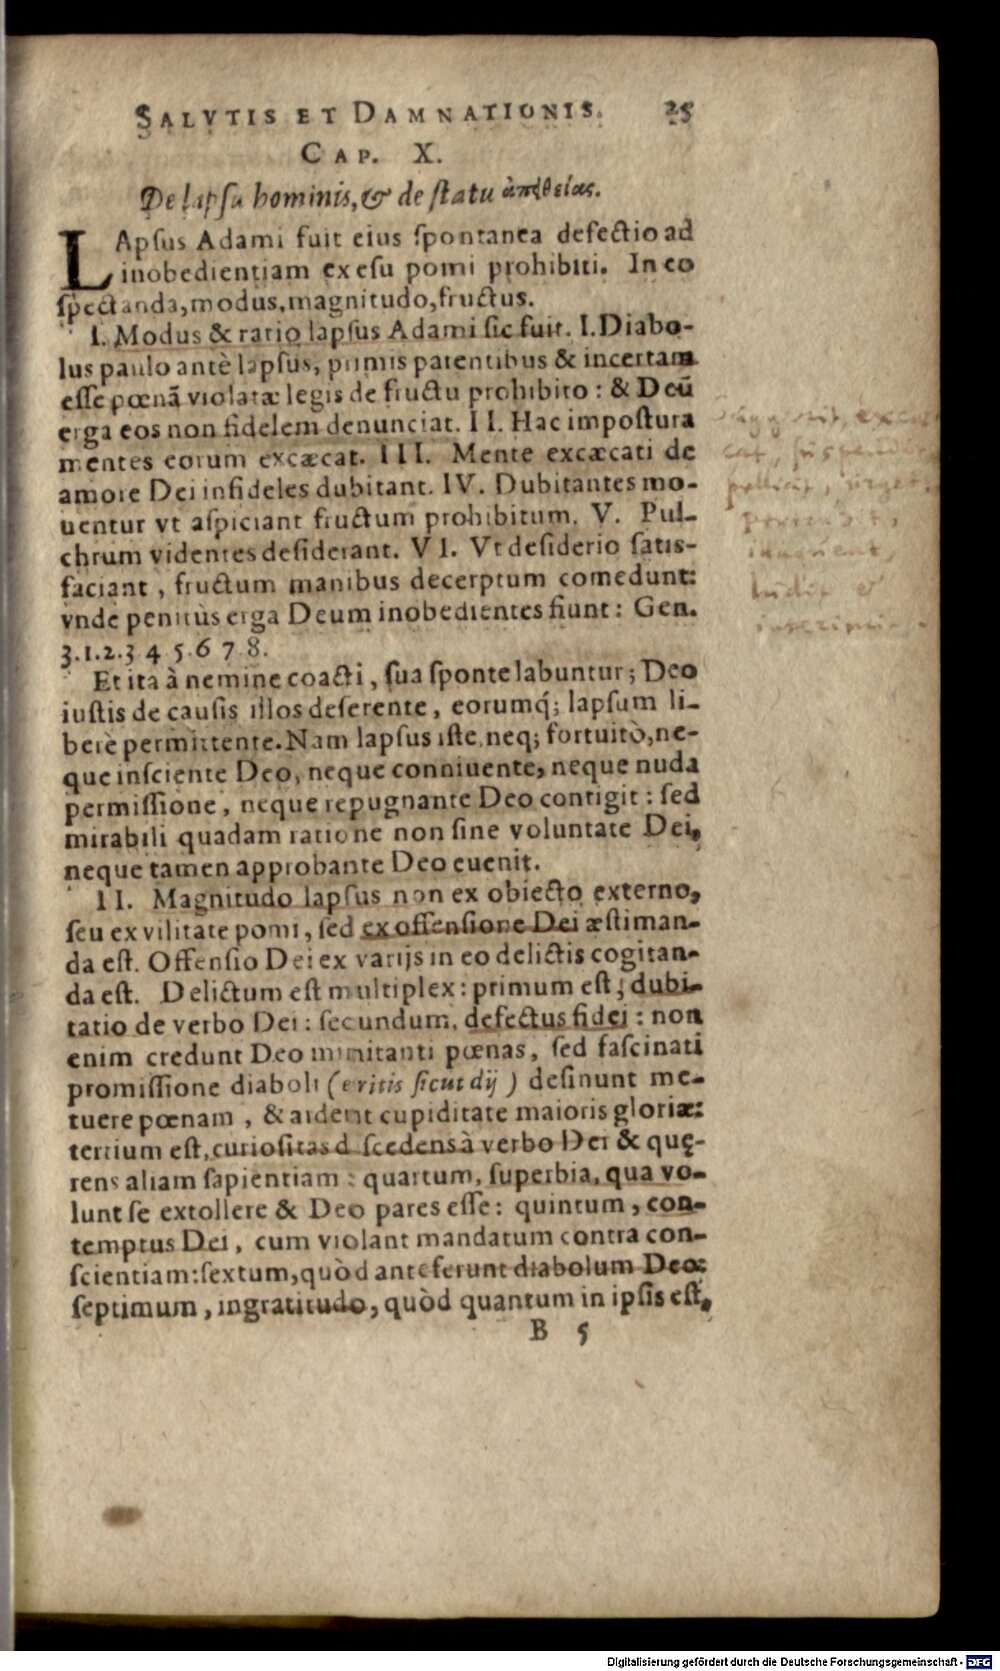 SALVTIS ET DAMNATIONIS. 25
CAP. X.
De lapsu hominis, & de statu ἀπειθείας.
LApsus Adami fuit eius spontanea defectio ad
inobedientiam ex esu pomi prohibiti. In eo
spectanda, modus, magnitudo, fructus.
I. Modus & ratio lapsus Adami sic fuit. I. Diabo-
lus paulo antè lapsus, primis parentibus & incertam
esse pœnã violatæ legis de fructu prohibito: & Deũ
erga eos non fidelem denunciat. II. Hac impostura
mentes eorum excæcat. III. Mente excæcati de
amore Dei infideles dubitant. IV. Dubitantes mo-
uentur vt aspiciant fructum prohibitum. V. Pul-
chrum videntes desiderant. VI. Vt desiderio satis-
faciant, fructum manibus decerptum comedunt:
vnde penitùs erga Deum inobedientes fiunt: Gen.
3.1.2.3 4 5.6 7 8.
Et ita à nemine coacti, sua sponte labuntur; Deo
iustis de causis illos deserente, eorumq́; lapsum li-
berè permittente. Nam lapsus iste, neq; fortuitò, ne-
que insciente Deo, neque conniuente, neque nuda
permissione, neque repugnante Deo contigit: sed
mirabili quadam ratione non sine voluntate Dei,
neque tamen approbante Deo euenit.
II. Magnitudo lapsus non ex obiecto externo,
seu ex vilitate pomi, sed ex offensione Dei æstiman-
da est. Offensio Dei ex varijs in eo delictis cogitan-
da est. Delictum est multiplex: primum est; dubi-
tatio de verbo Dei: secundum, defectus fidei: non
enim credunt Deo minitanti pœnas, sed fascinati
promissione diaboli (eritis sicut dij) desinunt me-
tuere pœnam, & ardent cupiditate maioris gloriæ:
tertium est, curiositas discedens à verbo Dei & quę-
rens aliam sapientiam: quartum, superbia, qua vo-
lunt se extollere & Deo pares esse: quintum, con-
temptus Dei, cum violant mandatum contra con-
scientiam: sextum, quòd anteferunt diabolum Deo:
septimum, ingratitudo, quòd quantum in ipsis est,
B 5
Digitalisierung gefördert durch die Deutsche Forschungsgemeinschaft - DFG